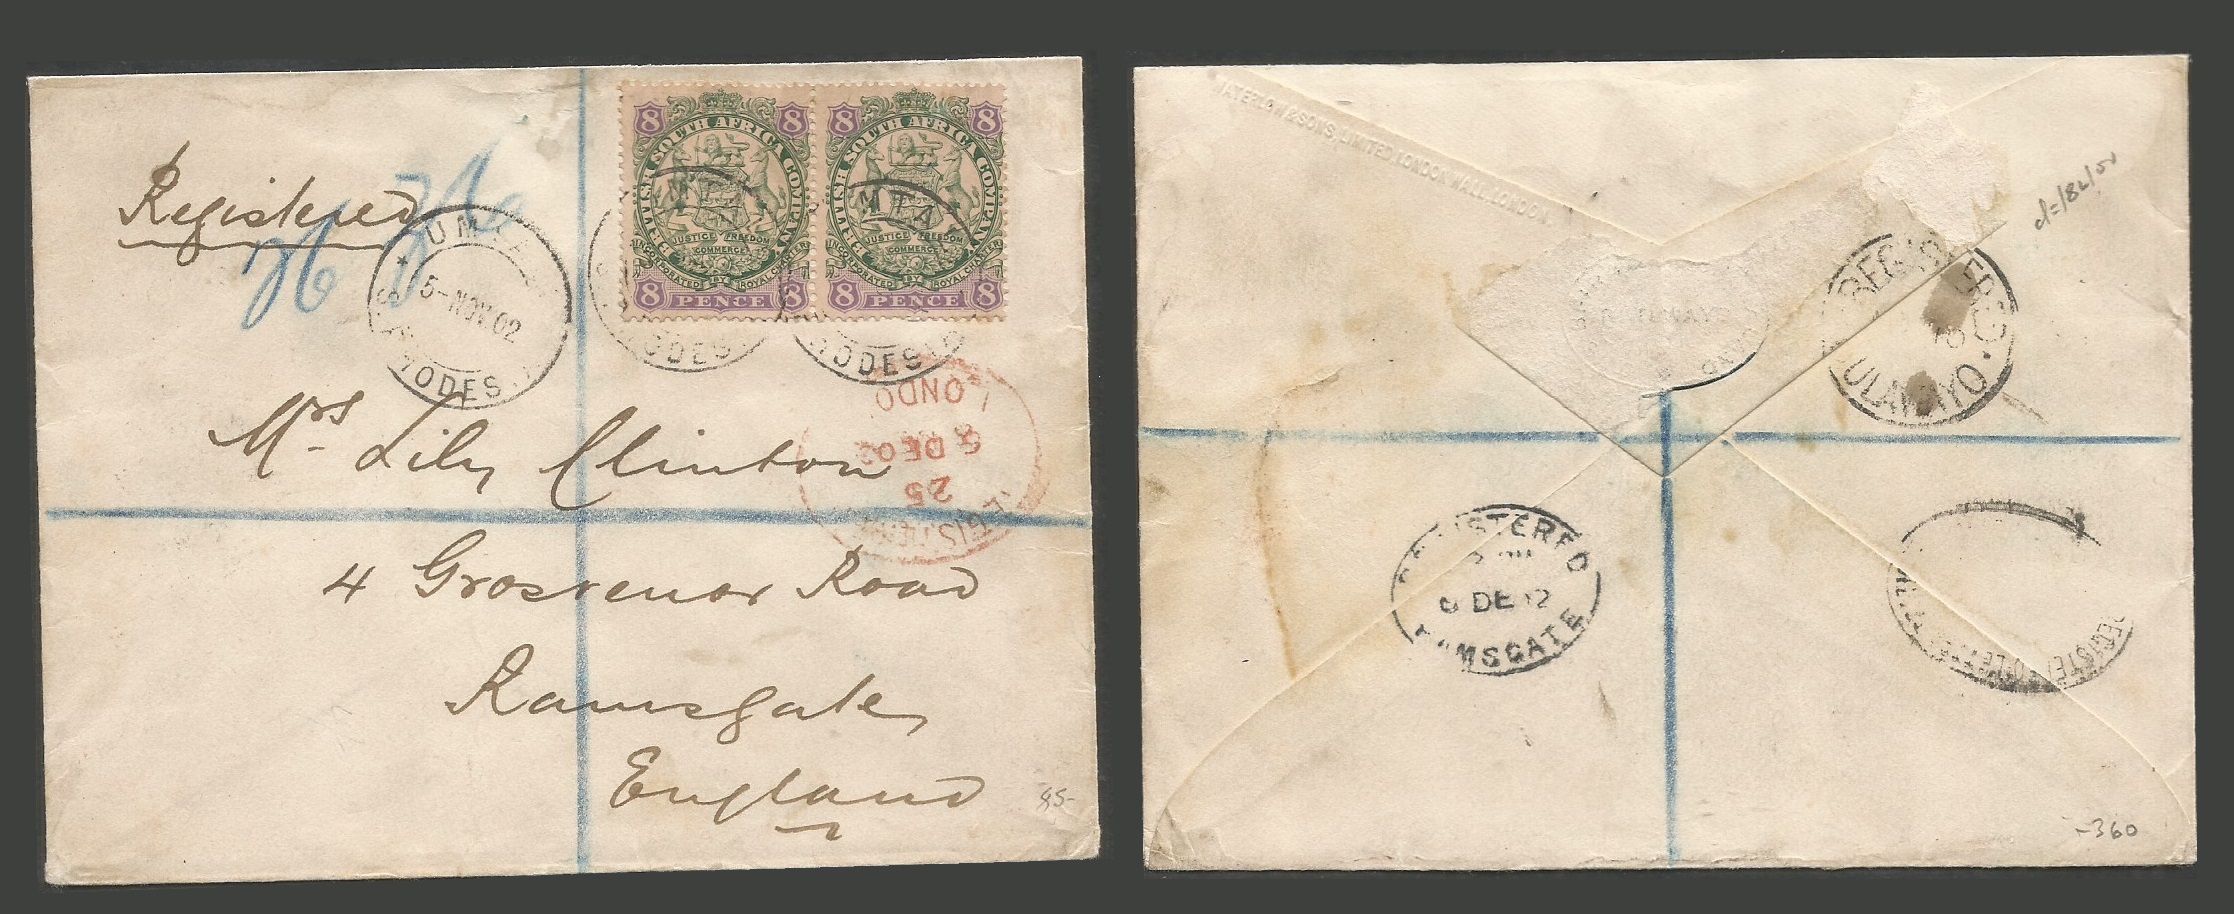 Registered
UMTALI
5-NOV.02
S. RHODESIA
8 8
BRITISH SOUTH AFRICA COMPANY
JUSTICE FREEDOM
COMMERCE
INCORPORATED BY ROYAL CHARTER
8 PENCE 8
8 8
BRITISH SOUTH AFRICA COMPANY
JUSTICE FREEDOM
COMMERCE
INCORPORATED BY ROYAL CHARTER
8 PENCE 8
MTA
RHODESIA
RHODESIA
Mrs Lily Clinton
4 Grosvenor Road
Ramsgate,
England
85-
REGISTERED
25
DE 02
LONDO
WATERLOW & SONS, LIMITED, LONDON WALL, LONDON.
REGISTERED
BULAWAYO.
REGISTERED
DE 02
RAMSGATE
REGISTERED LETTER
-360